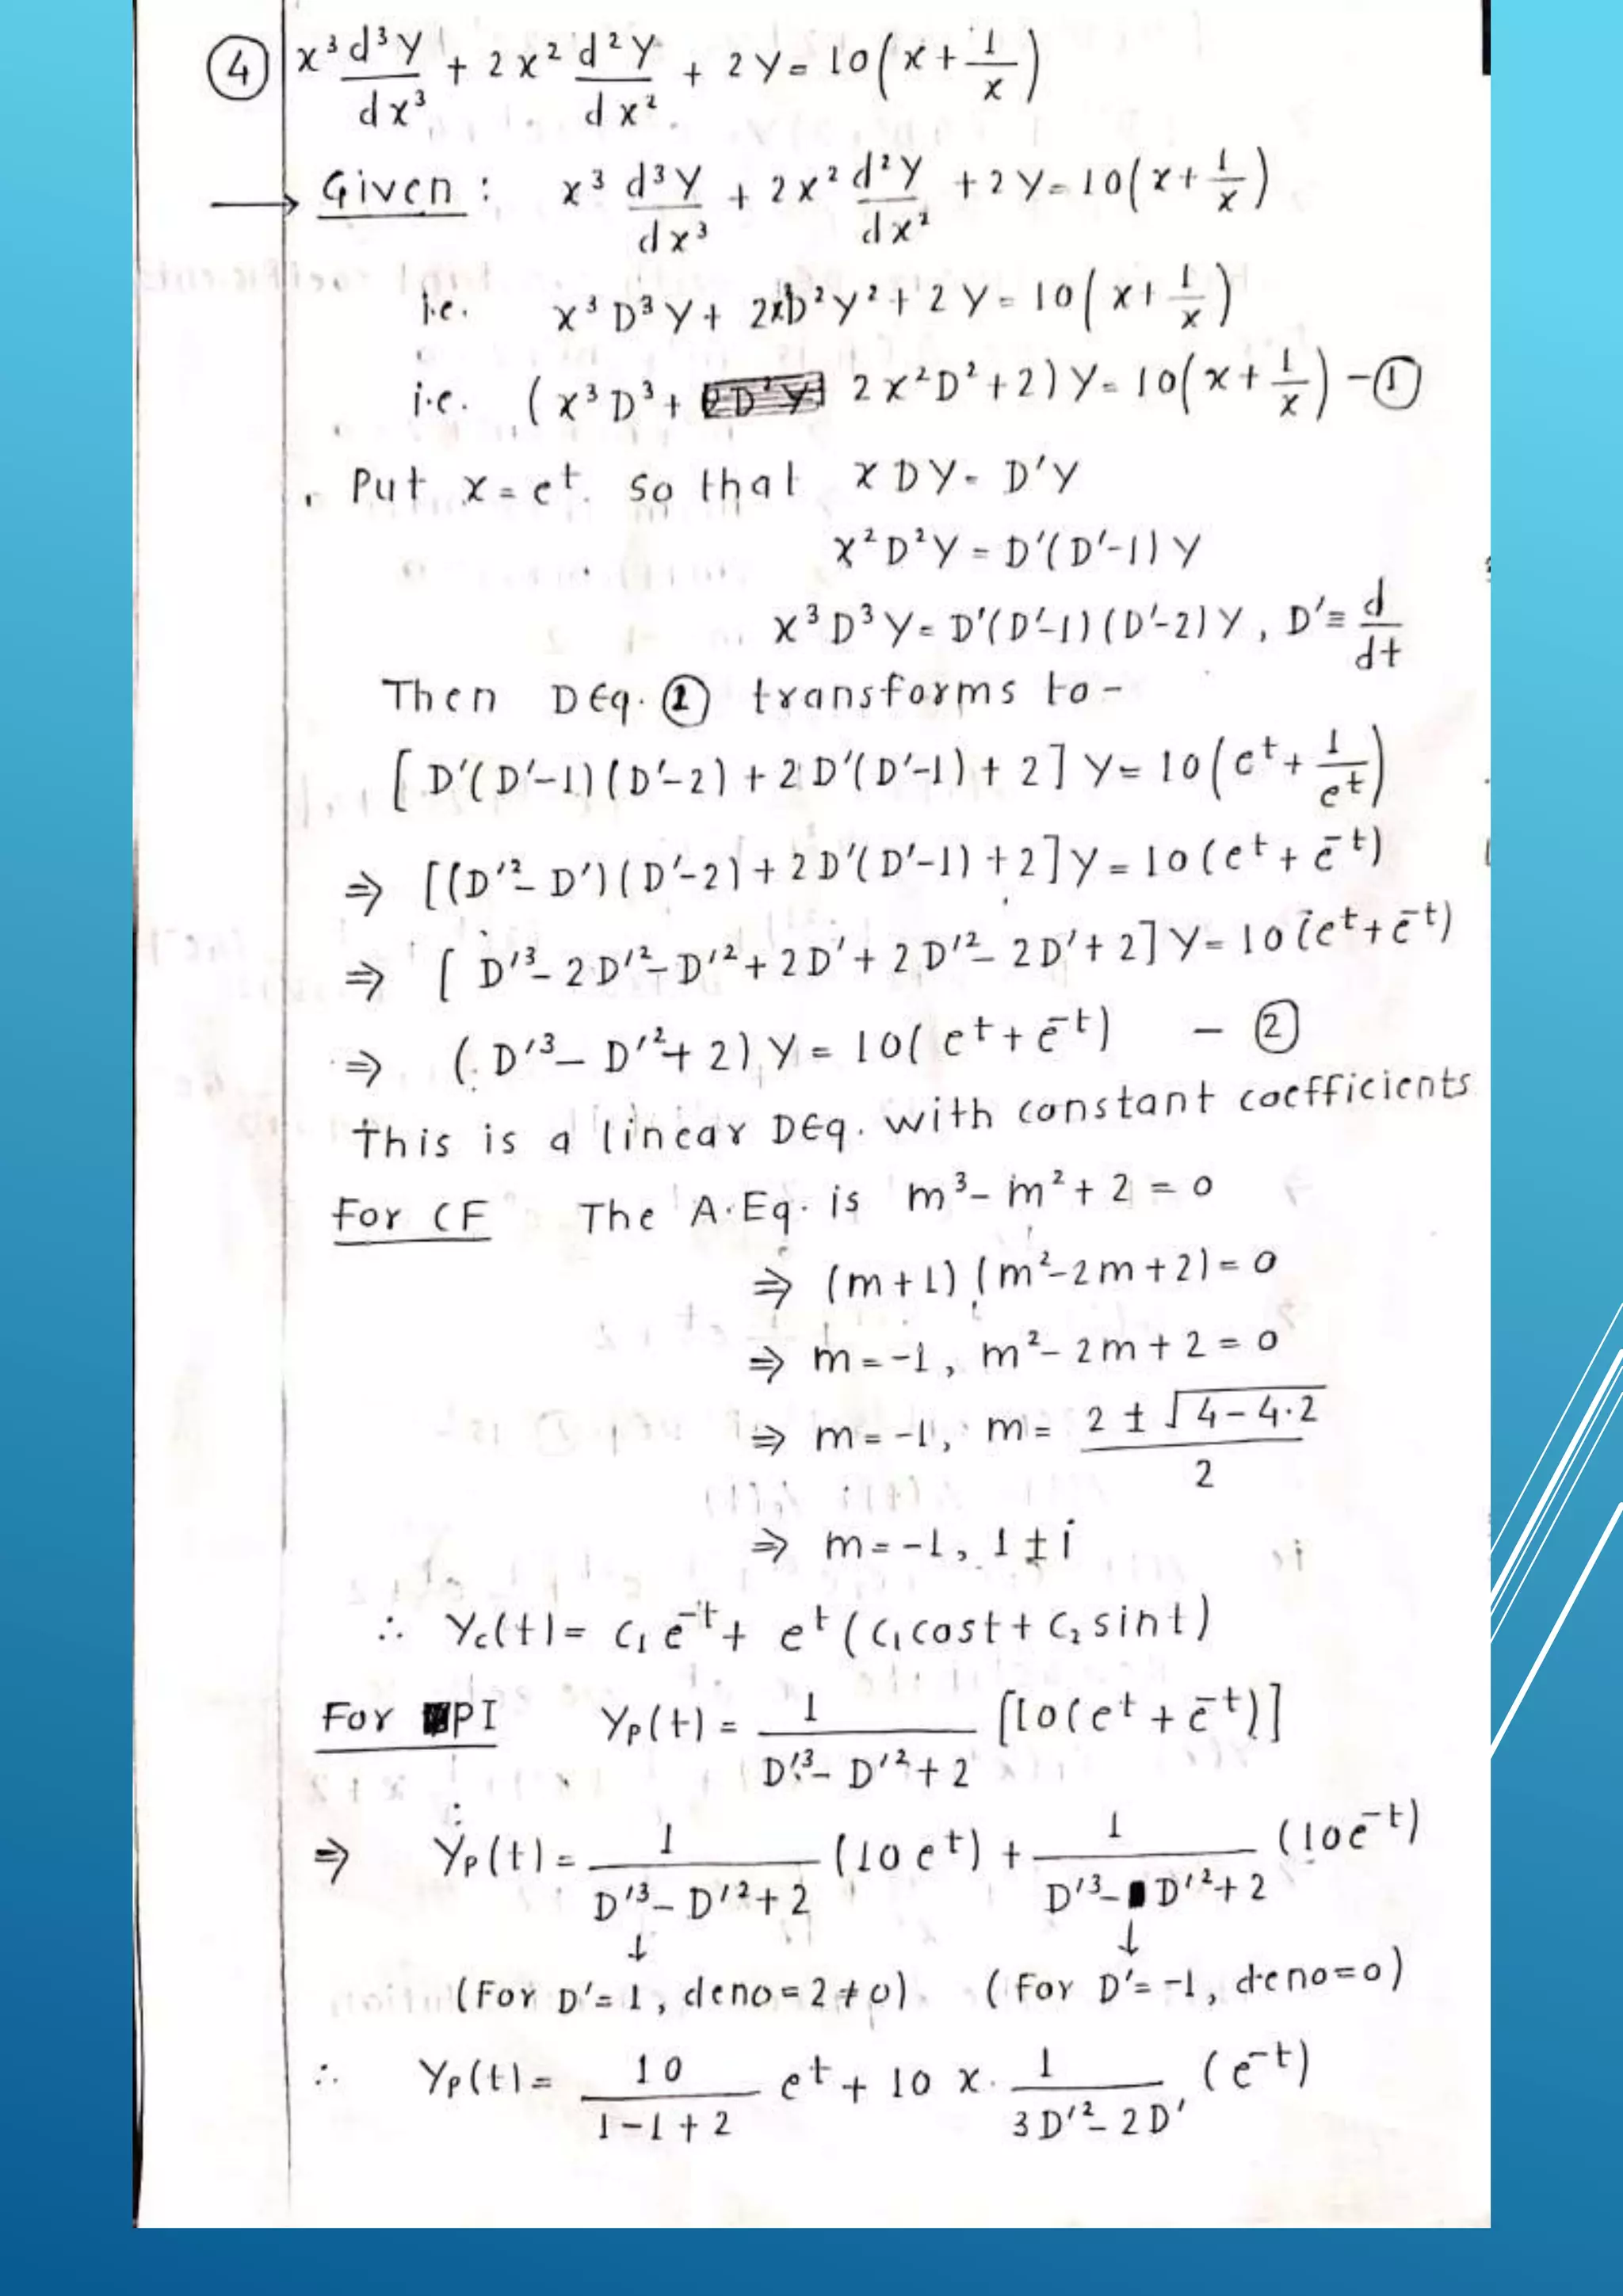 ④ x³ d³y/dx³ + 2x² d²y/dx² + 2y = 10(x + 1/x)
→ Given : x³ d³y/dx³ + 2x² d²y/dx² + 2y = 10(x + 1/x)
i.e. x³D³y + 2xD²y² + 2y = 10(x + 1/x)
i.e. (x³D³ + 2x²D² + 2)y = 10(x + 1/x) - ①
Put x = e^t. So that xDy = D'y
x²D²y = D'(D'-1)y
x³D³y = D'(D'-1)(D'-2)y, D' ≡ d/dt
Then DEq. ① transforms to -
[D'(D'-1)(D'-2) + 2D'(D'-1) + 2]y = 10(e^t + 1/e^t)
⇒ [(D'²-D')(D'-2) + 2D'(D'-1) + 2]y = 10(e^t + e^-t)
⇒ [D'³ - 2D'² - D'² + 2D' + 2D'² - 2D' + 2]y = 10(e^t + e^-t)
⇒ (D'³ - D'² + 2)y = 10(e^t + e^-t) - ②
This is a linear DEq. with constant coefficients
For CF The A.Eq. is m³ - m² + 2 = 0
⇒ (m+1)(m²-2m+2) = 0
⇒ m = -1, m² - 2m + 2 = 0
⇒ m = -1, m = (2 ± √(4-4·2))/2
⇒ m = -1, 1 ± i
∴ yc(t) = c₁e^-t + e^t(c₁cost + c₂sint)
For PI yp(t) = 1/(D'³ - D'² + 2) [10(e^t + e^-t)]
⇒ yp(t) = 1/(D'³ - D'² + 2) (10e^t) + 1/(D'³ - D'² + 2) (10e^-t)
↓ ↓
(For D' = 1, deno = 2 ≠ 0) (For D' = -1, deno = 0)
∴ yp(t) = 10/(1-1+2) e^t + 10x · 1/(3D'² - 2D') (e^-t)